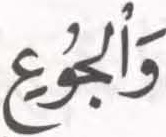 وَٱلْجُوعِ